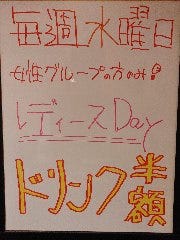 毎週水曜日
女性グループの方のみ!
レディースDay
ドリンク半額